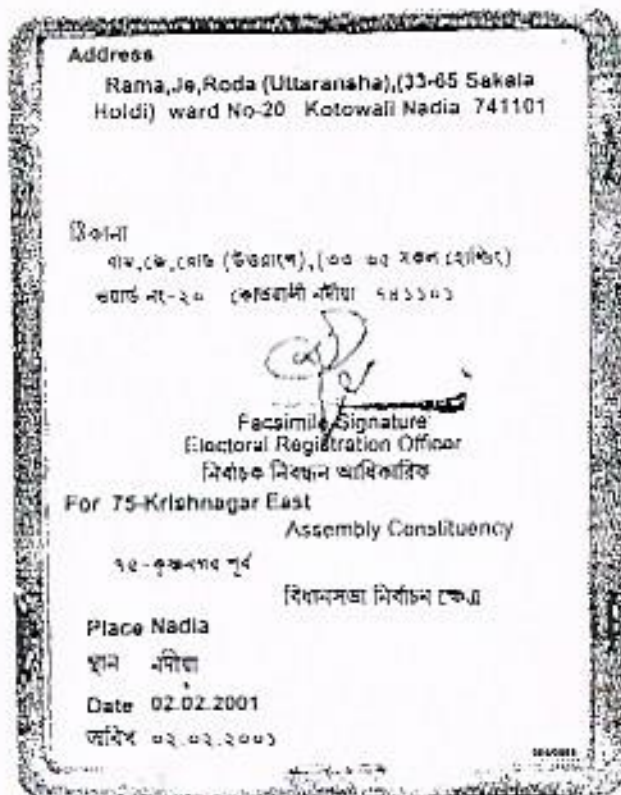 Address
Rama,Je,Roda (Uttaransha),(33-65 Sakala
Holdi) ward No-20 Kotowali Nadia 741101
ঠিকানা
রাম,জে,রোড (উত্তরাংশ),(৩৩ ৬৫ সকল হোল্ডিং)
ওয়ার্ড নং-২০ কোতয়ালী নদীয়া ৭৪১১০১
Facsimile Signature
Electoral Registration Officer
নির্বাচক নিবন্ধন আধিকারিক
For 75-Krishnagar East
Assembly Constituency
৭৫-কৃষ্ণনগর পূর্ব
বিধানসভা নির্বাচন ক্ষেত্র
Place Nadia
স্থান নদীয়া
Date 02.02.2001
তারিখ ০২.০২.২০০১